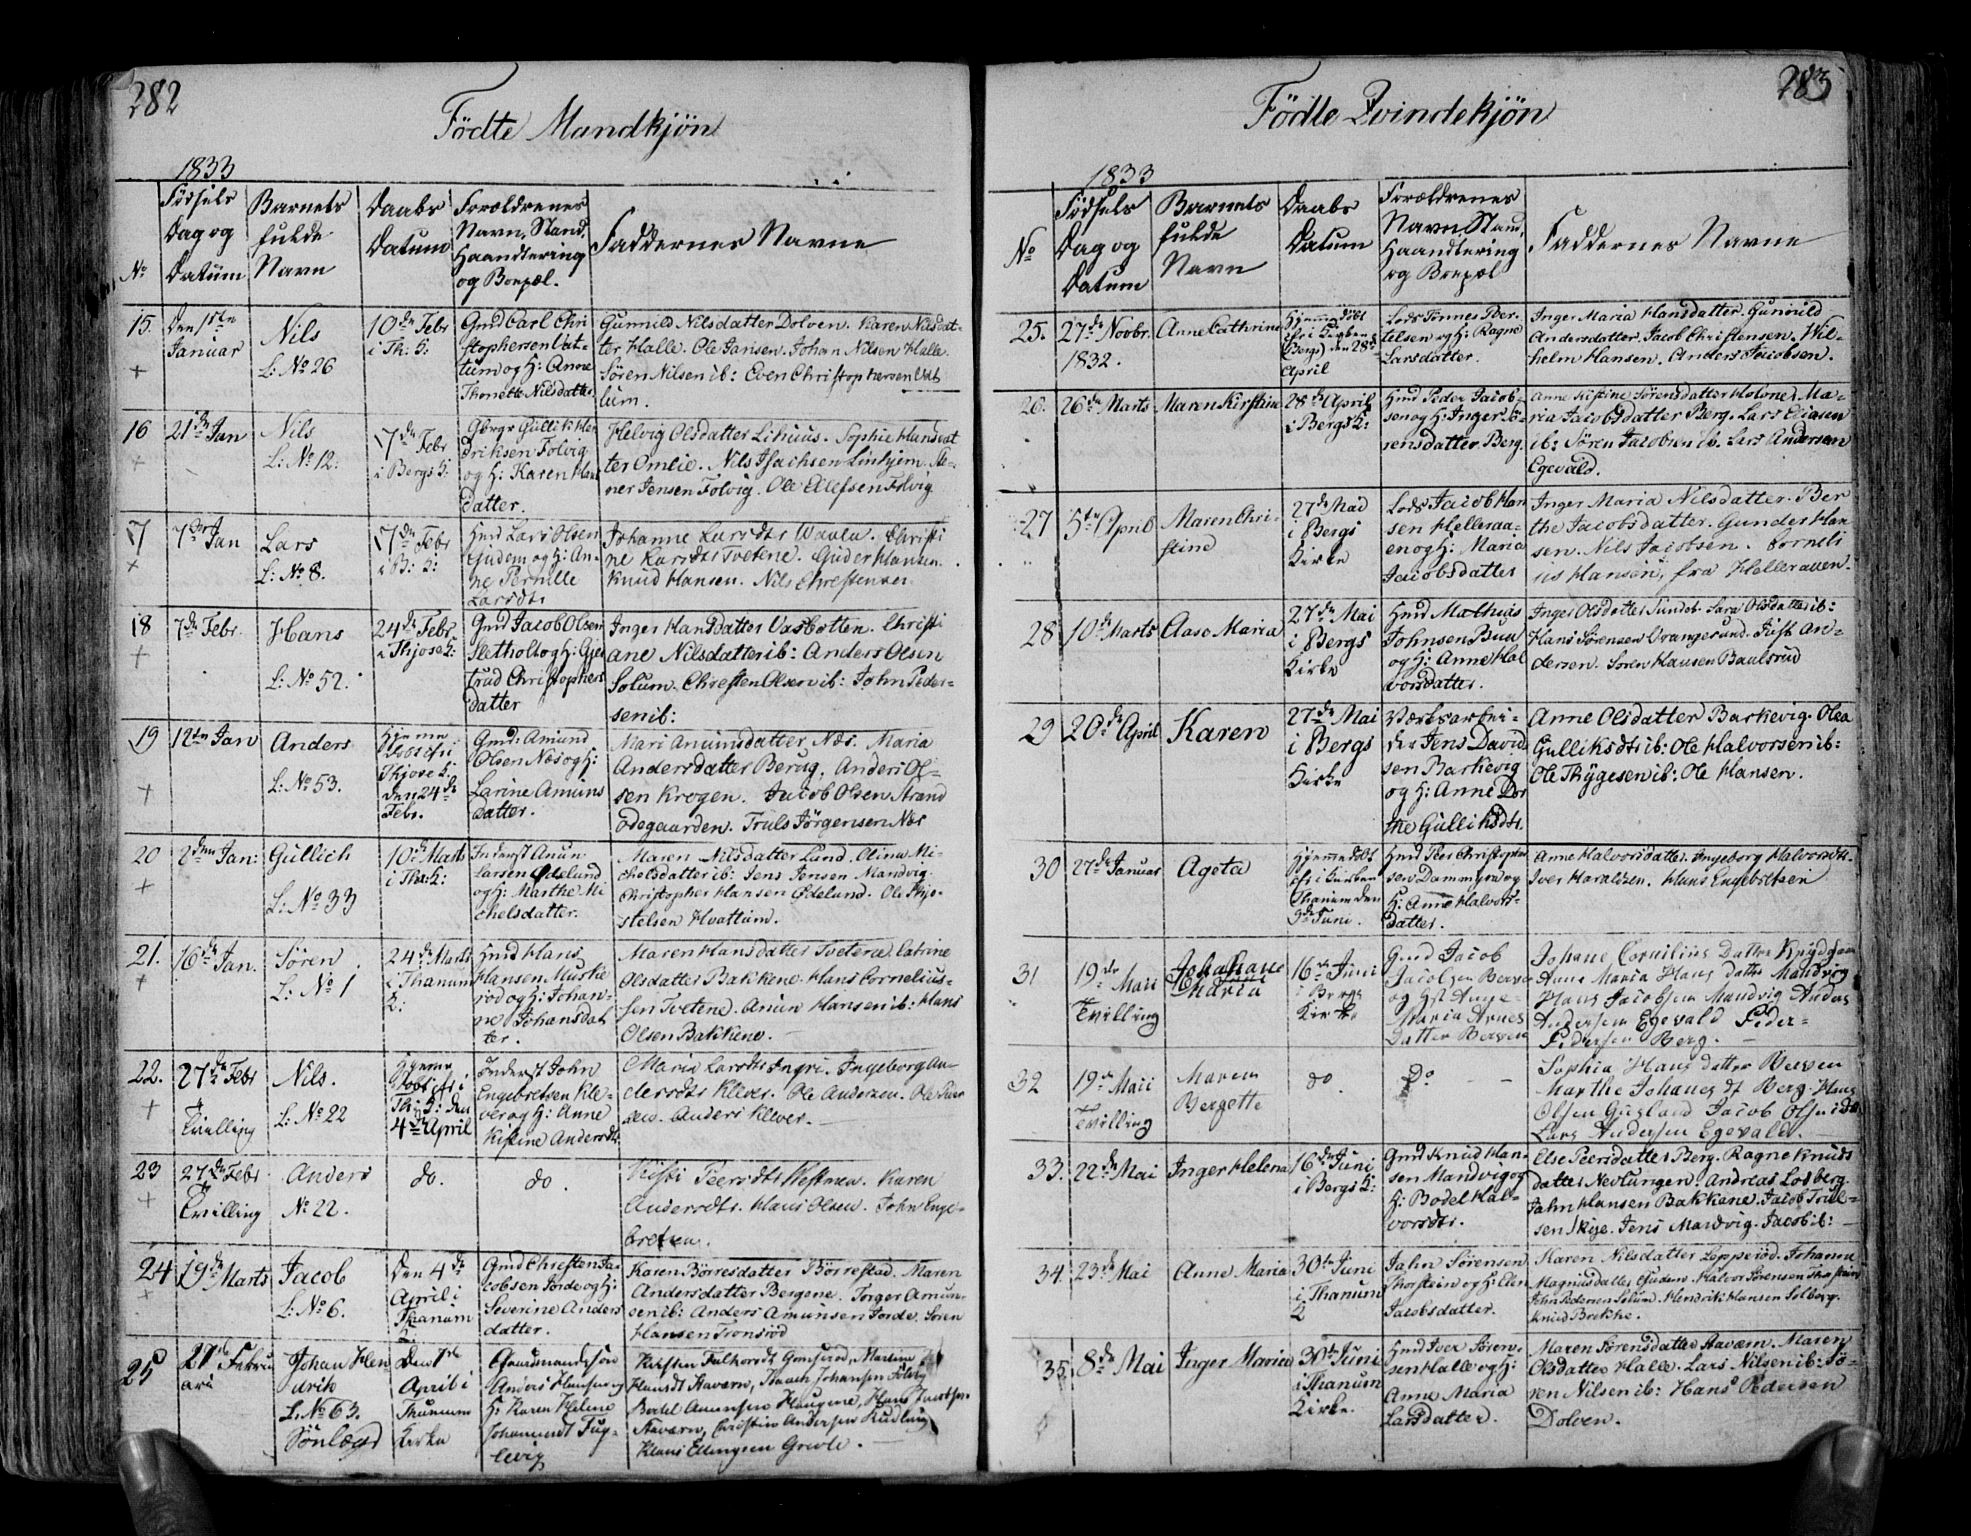 282
Födte Mandkjön
1833
No
Födsels
Dag og
Datum
Barnets
fulde
Navn
Daabs
Datum
Forældrenes
Navn, Stand,
Haandtering
og Bopæl.
Faddernes Navne
15.
Den 15te
Januar
Nils
L: No 26
10de Febr
i Th: K:
Gmd Carl Chri
stophersen Vat-
tum og H: Anne
Thonette Nilsdatter
Gunnild Nilsdatter Dolven. Karen Nilsdat-
ter Halle. Ole Jansen. Johan Nilsen Halle.
Sören Nilsen ib: Even Christophersen Vat
tum.
16
21de Jan
Nils
L: No 12:
17de Febr
i Bergs K:
Gullik Hen
driksen Folvig
og H: Karen Hans
datter.
Helvig Olsdatter Sophie Hansdat
ter Omlie. Nils Isachsen Linhjem.
ner Jensen Folvig. Ole Ellefsen Folvig
17
7de Jan
Lars
L: No 8.
17de Febr
i B: K:
Hmd Lars Olsen
Gudem og H: An-
ne Pernille
Larsdtr
Johanne Larsdtr Waala. Christi
ne Larsdtr Tvetene. Guder Hansen.
Knud Hansen. Nils Christensen
18
7de Febr.
Hans
L: No 52.
24de Febr
i Thjose K:
Gmd Jacob Olsen
Sletholt og H: Gjer
trud Christophers
datter
Inger Hansdatter Vasbotten. Christi
ane Nilsdatter ib: Anders Olsen
Solum. Christen Olsen ib: John Peder-
sen ib:
19
12te Jan
Anders
L: No 53.
Hjemme
döbt Chr i
Thjose K:
den 24de
Febr.
Gmd: Amund
Olsen Næs og H:
Larine Amuns
datter.
Mari Amunsdatter Næs. Maria
Andersdatter Berug. Anders Ol-
sen Krogen. Jacob Olsen Strand
ödegaarden. Truls Jörgensen Næs
20
2den Jan:
Gullich
L: No 33
10de Marts
i Tha: K:
Inderst Amun
Larsen Ödelund
og H: Marthe Mi
chelsdatter.
Maren Nilsdatter Lund. Olina Mi-
chelsdatter ib: Jens Jensen Mandvig.
Christopher Hansen Ödelund. Ole Thjo-
stelsen Hvattum.
21.
16de Jan.
Sören
L: No 1
24de Marts
i Thanum
K:
Hmd Hans
Hansen Muske
röd og H: Johan-
ne Johansdat
ter.
Maren Hansdatter Tvetene. Catrine
Olsdatter Bakkene. Hans Cornelius-
sen Tvetene. Amun Hansen ib: Hans
Olsen Bakkene.
22.
27de Febr
Tvilling
Nils.
L: No 22
Hjemme
döbt Chr i
Th: K: den
4de April
Inderst John
Engebretsen Kle-
ver og H: Anne
Kistine Andersdtr
Maria Larsdtr Ingri. Ingeborg An-
dersdtr Klever. Ole Andersen. Ole Peder
sen. Anders Klever.
23
27de Febr
Tvilling
Anders
No 22.
do.
do.
Peersdtr Karen
Andersdtr. Hans Olsen. John Enge-
bretsen.
24
19de Marts
Jacob
L: No 6.
Den 4de
April i
Thanum
K
Gmd Christen Ja-
cobsen Jorde og H:
Severine Anders
datter.
Karen Börresdatter Börrestad. Maren
Andersdatter Bergene. Torger Amun-
sen ib: Anders Amunsen Jorde. Sören
Hansen Tronsröd
25
27de Febru
ari
Johan Hen
drik
L: No 63.
Sönlægd
Den 7de
April i
Thanum
Kirke
Gaardmandssön
Anders Hansen og
H: Karen Helene
Johansdt Fug-
levig
Kirsten Falkorsdt Gonsröd, Martine
Hansdt Stavern, Isaach Johansen Folvig
Bodel Amunsen Haugene, Hans Jacobsen
Stavern, Christen Andersen
Klaus Ellingsen
283
Födte Qvindekjön
1833
No
Födsels
Dag og
Datum
Barnets
fulde
Navn
Daabs
Datum
Forældrenes
Navn, Stand,
Haandtering
og Bopæl
Faddernes Navne
25.
27de Novbr.
1832.
Anne Cathrine
Hjemmedöbt
Chr i Kirken
(Bergs) den 28de
April
Lods Tönnes Ber-
telsen og H: Ragne
Larsdatter.
Inger Maria Hansdatter. Gunnild
Andersdatter. Jacob Christensen. Wil-
helm Hansen. Anders Jacobsen.
26.
26de Marts
Maren Kirstine
28de April
i Bergs K:
Hmd Peder Jacob-
sen og H: Inger Sö-
rensdatter Berg.
Anne Kistine Sörensdatter Holone. Ma-
ria Jacobsdatter Berg. Lars Eliasen
ib: Sören Jacobsen ib. Lars Andersen
Egevald.
27
5te April
Maren Chri-
stine
27de Mai
i Bergs
Kirke
Lods Jacob Han
sen Helleraa-
en og H: Maria
Jacobsdatter
Inger Maria Nilsdatter. Ber
the Jacobsdatter. Gunder Han
sen. Nils Jacobsen. Corneli
us Hansen, fra Helleraaen.
28
10de Marts
Aase Maria
27de Mai
i Bergs
Kirke
Hmd Mathias
Johnsen Bua
og H: Anne Hal
vorsdatter.
Inger Olsdatter Sundet. Sara Olsdatter ib:
Hans Sörensen Orangesund. Just An-
dersen. Sören Hansen Baulsrud
29
20de April
Karen
27de Mai
i Bergs
Kirke
Værksarbei-
der Jens David
sen Barkevig
og H: Anne Dor
the Gulliksdtr.
Anne Olsdatter Barkevig. Olea
Gulliksdtr ib: Ole Halvorsen ib:
Ole Thygesen ib: Ole Hansen.
30
27de Januar
Ageta
Hjemmedöbt
Chr i Kirken
Thanum den
9de Juni.
Hmd Peer Christophen
sen Dammyra og
H: Anne Halvors-
datter.
Anne Halvorsdatter. Ingeborg Halvorsdtr.
Iver Haraldsen. Hans Engebretsen
31
19de Maii
Tvilling
Johane
Maria
16de Juni
i Bergs
Kirke
Gmd Jacob
Jacobsen Berven
og Hst Anne
Maria Arnes
Datter Berven
Johane Cornilius Datter
Anne Maria Hans datter Mandvig
Hans Jacobsen Mandvig Anders
Andersen Egevald Peder-
Pedersen Berg.
32
19de Maii
Tvilling
Maren
Bergette
do
Do
Sophia Hans datter Berven
Marthe Johanes dt Berg. Hans
Olsen Gusland Jacob Olsen ib
Lars Andersen Egevald.
33.
22de Mai
Inger Helena
16de Juni
i Bergs K:
Gmd Knud Han-
sen Mandvig og
H: Bodel Hal-
vorsdtr.
Else Peersdatter Berg. Ragne Knuds
datter Nevlungen. Andreas Losberg.
Jahn Hansen Bakkane. Jacob Trul-
sen Skye. Jens Mandvig. Jacob ib:
34.
23de Mai
Anne Maria
30te Juni
i Thanum
K
Jahn Sörensen
Thorstein og H: Elen
Jacobsdatter.
Karen Nilsdatter Lepperöd. Johanna
Magnusdatter Gudem. Halvor Sörensen Thorstein
John Pedersen Solum. Hendrik Hansen Solberg.
Knud Brekke.
35.
8de Mai
Inger Maria
30te Juni
i Thanum
Kirke.
Hmd Iver Sören-
sen Halle og H:
Anne Maria
Larsdatter.
Maren Sörensdatter Stavern. Maren
Olsdatter Halle. Lars Nilsen ib: Sö-
ren Nilsen ib: Hans Pedersen
Dolven.